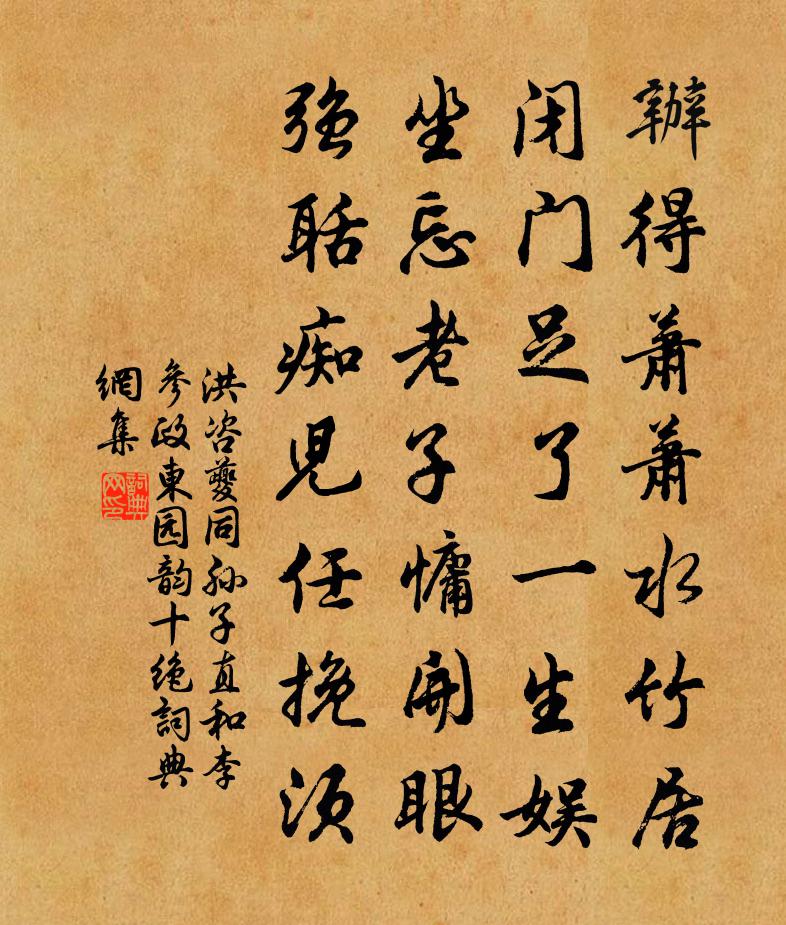 辦得萧萧水竹居
闭门足了一生娱
坐忘老子慵開眼
强聒痴児任挽须
洪咨夔同孙子直和李
參政東园韵十绝詞典
網集
詞典网印